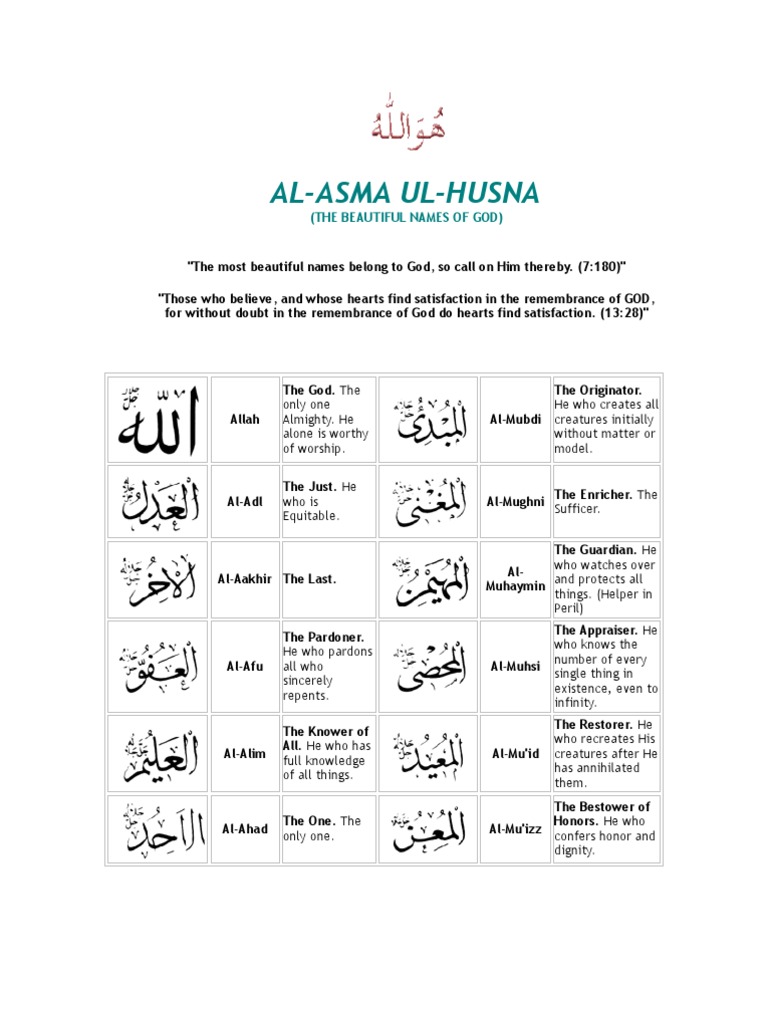 هُوَاللّٰهُ
AL-ASMA UL-HUSNA
(THE BEAUTIFUL NAMES OF GOD)
"The most beautiful names belong to God, so call on Him thereby. (7:180)"
"Those who believe, and whose hearts find satisfaction in the remembrance of GOD,
for without doubt in the remembrance of God do hearts find satisfaction. (13:28)"
الله
Allah
The God. The
only one
Almighty. He
alone is worthy
of worship.
اَلْمُبْدِئُ
Al-Mubdi
The Originator.
He who creates all
creatures initially
without matter or
model.
اَلْعَدْلُ
Al-Adl
The Just. He
who is
Equitable.
اَلْمُغْنِي
Al-Mughni
The Enricher. The
Sufficer.
اَلْآخِرُ
Al-Aakhir
The Last.
اَلْمُهَيْمِنُ
Al-
Muhaymin
The Guardian. He
who watches over
and protects all
things. (Helper in
Peril)
اَلْعَفُوُّ
Al-Afu
The Pardoner.
He who pardons
all who
sincerely
repents.
اَلْمُحْصِي
Al-Muhsi
The Appraiser. He
who knows the
number of every
single thing in
existence, even to
infinity.
اَلْعَلِيمُ
Al-Alim
The Knower of
All. He who has
full knowledge
of all things.
اَلْمُعِيدُ
Al-Mu'id
The Restorer. He
who recreates His
creatures after He
has annihilated
them.
اَلْاَحَدُ
Al-Ahad
The One. The
only one.
اَلْمُعِزُّ
Al-Mu'izz
The Bestower of
Honors. He who
confers honor and
dignity.